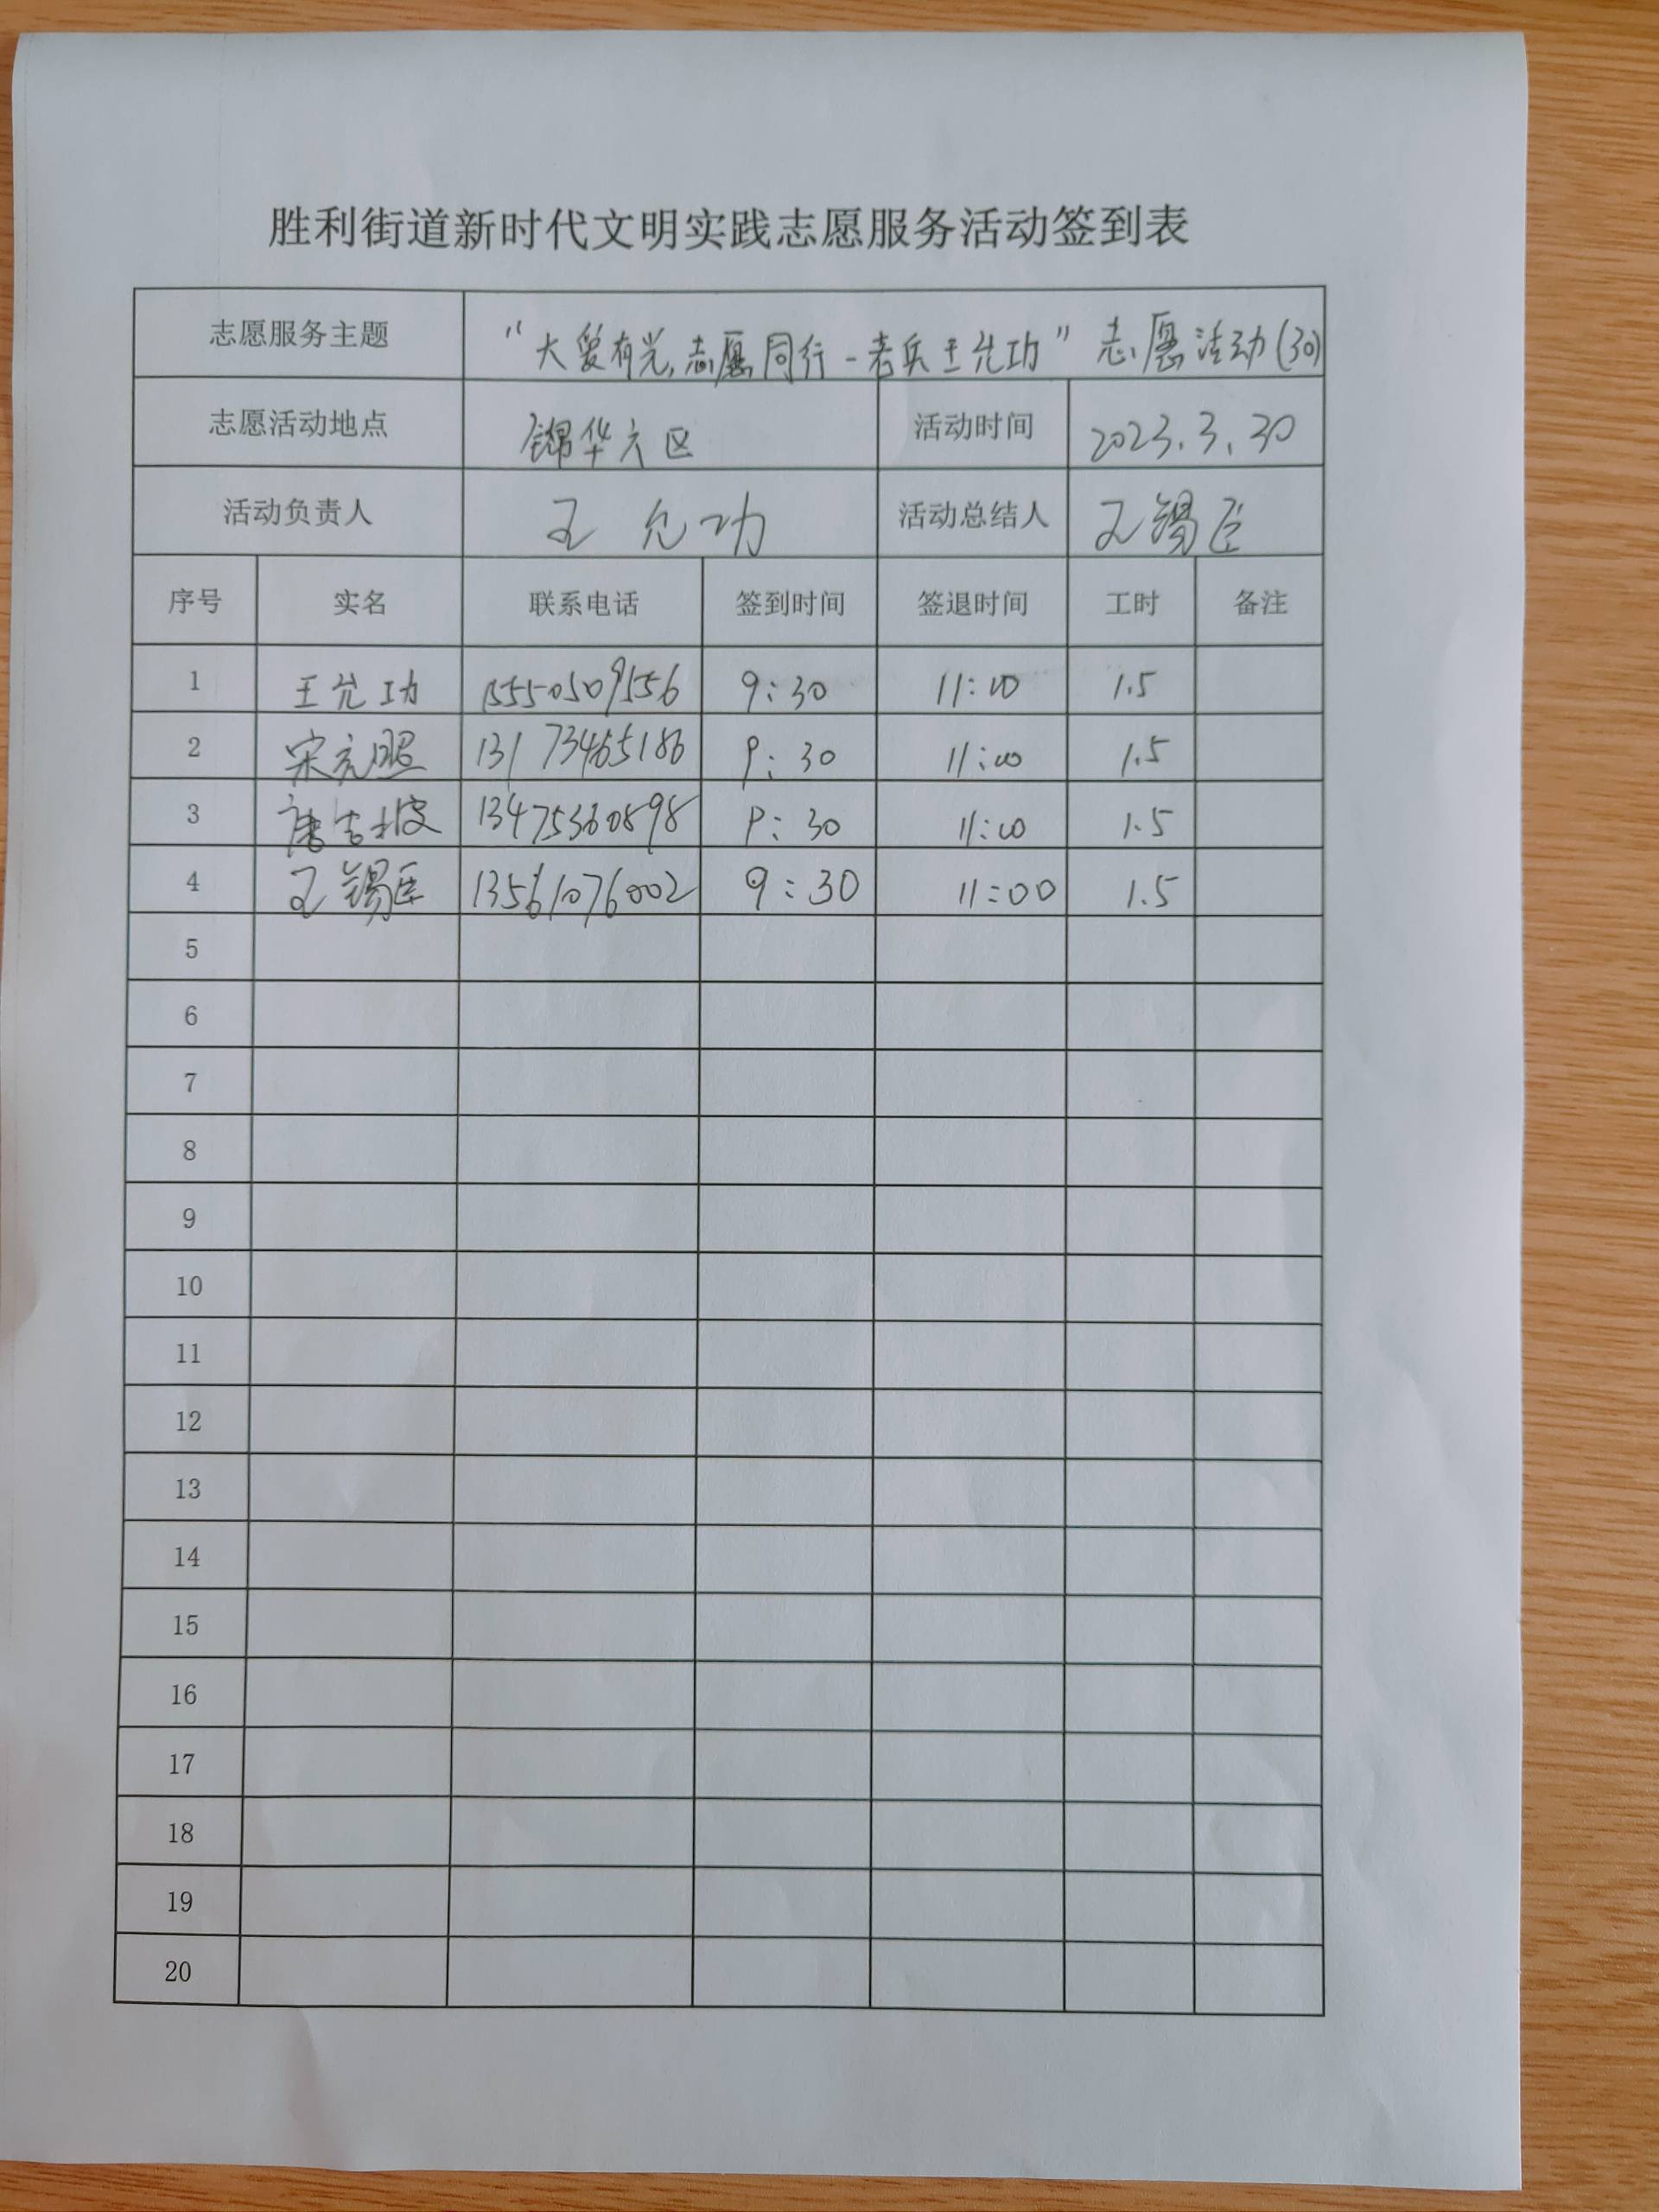 胜利街道新时代文明实践志愿服务活动签到表
志愿服务主题 “大爱有光,志愿同行-老兵王允功”志愿活动(30)
志愿活动地点 锦华六区 活动时间 2023.3.30
活动负责人 王允功 活动总结人 王锡臣
序号 实名 联系电话 签到时间 签退时间 工时 备注
1 王允功 15550509556 9:30 11:00 1.5
2 宋元照 13173465186 9:30 11:00 1.5
3 唐吉坡 13475360898 9:30 11:00 1.5
4 王锡臣 13561076002 9:30 11:00 1.5
5
6
7
8
9
10
11
12
13
14
15
16
17
18
19
20